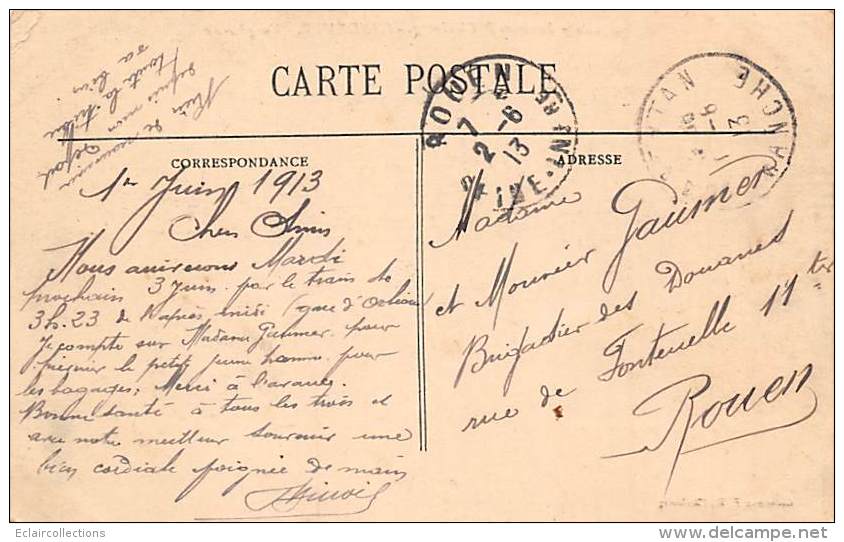 CARTE POSTALE
CORRESPONDANCE
ADRESSE
1er Juin 1913
Chers Amis
Nous arriverons Mardi
prochain 3 Juin par le train de
3h.23 de l'après midi (gare d'Orléans)
Je compte sur Madame Gaumer pour
le petit jeune homme pour
les bagages; Merci à l'avance.
Bonne santé à tous les trois et
avec notre meilleur souvenir une
bien cordiale poignée de main
Rien de nouveau
depuis mon départ
toute la tribu
va bien
ROUEN
7
2-6
13
MANCHE
13
Madame
et Monsieur Gaumer
Brigadier des Douanes
rue de Fontenelle 17ter
Rouen
Eclaircollections
www.delcampe.net